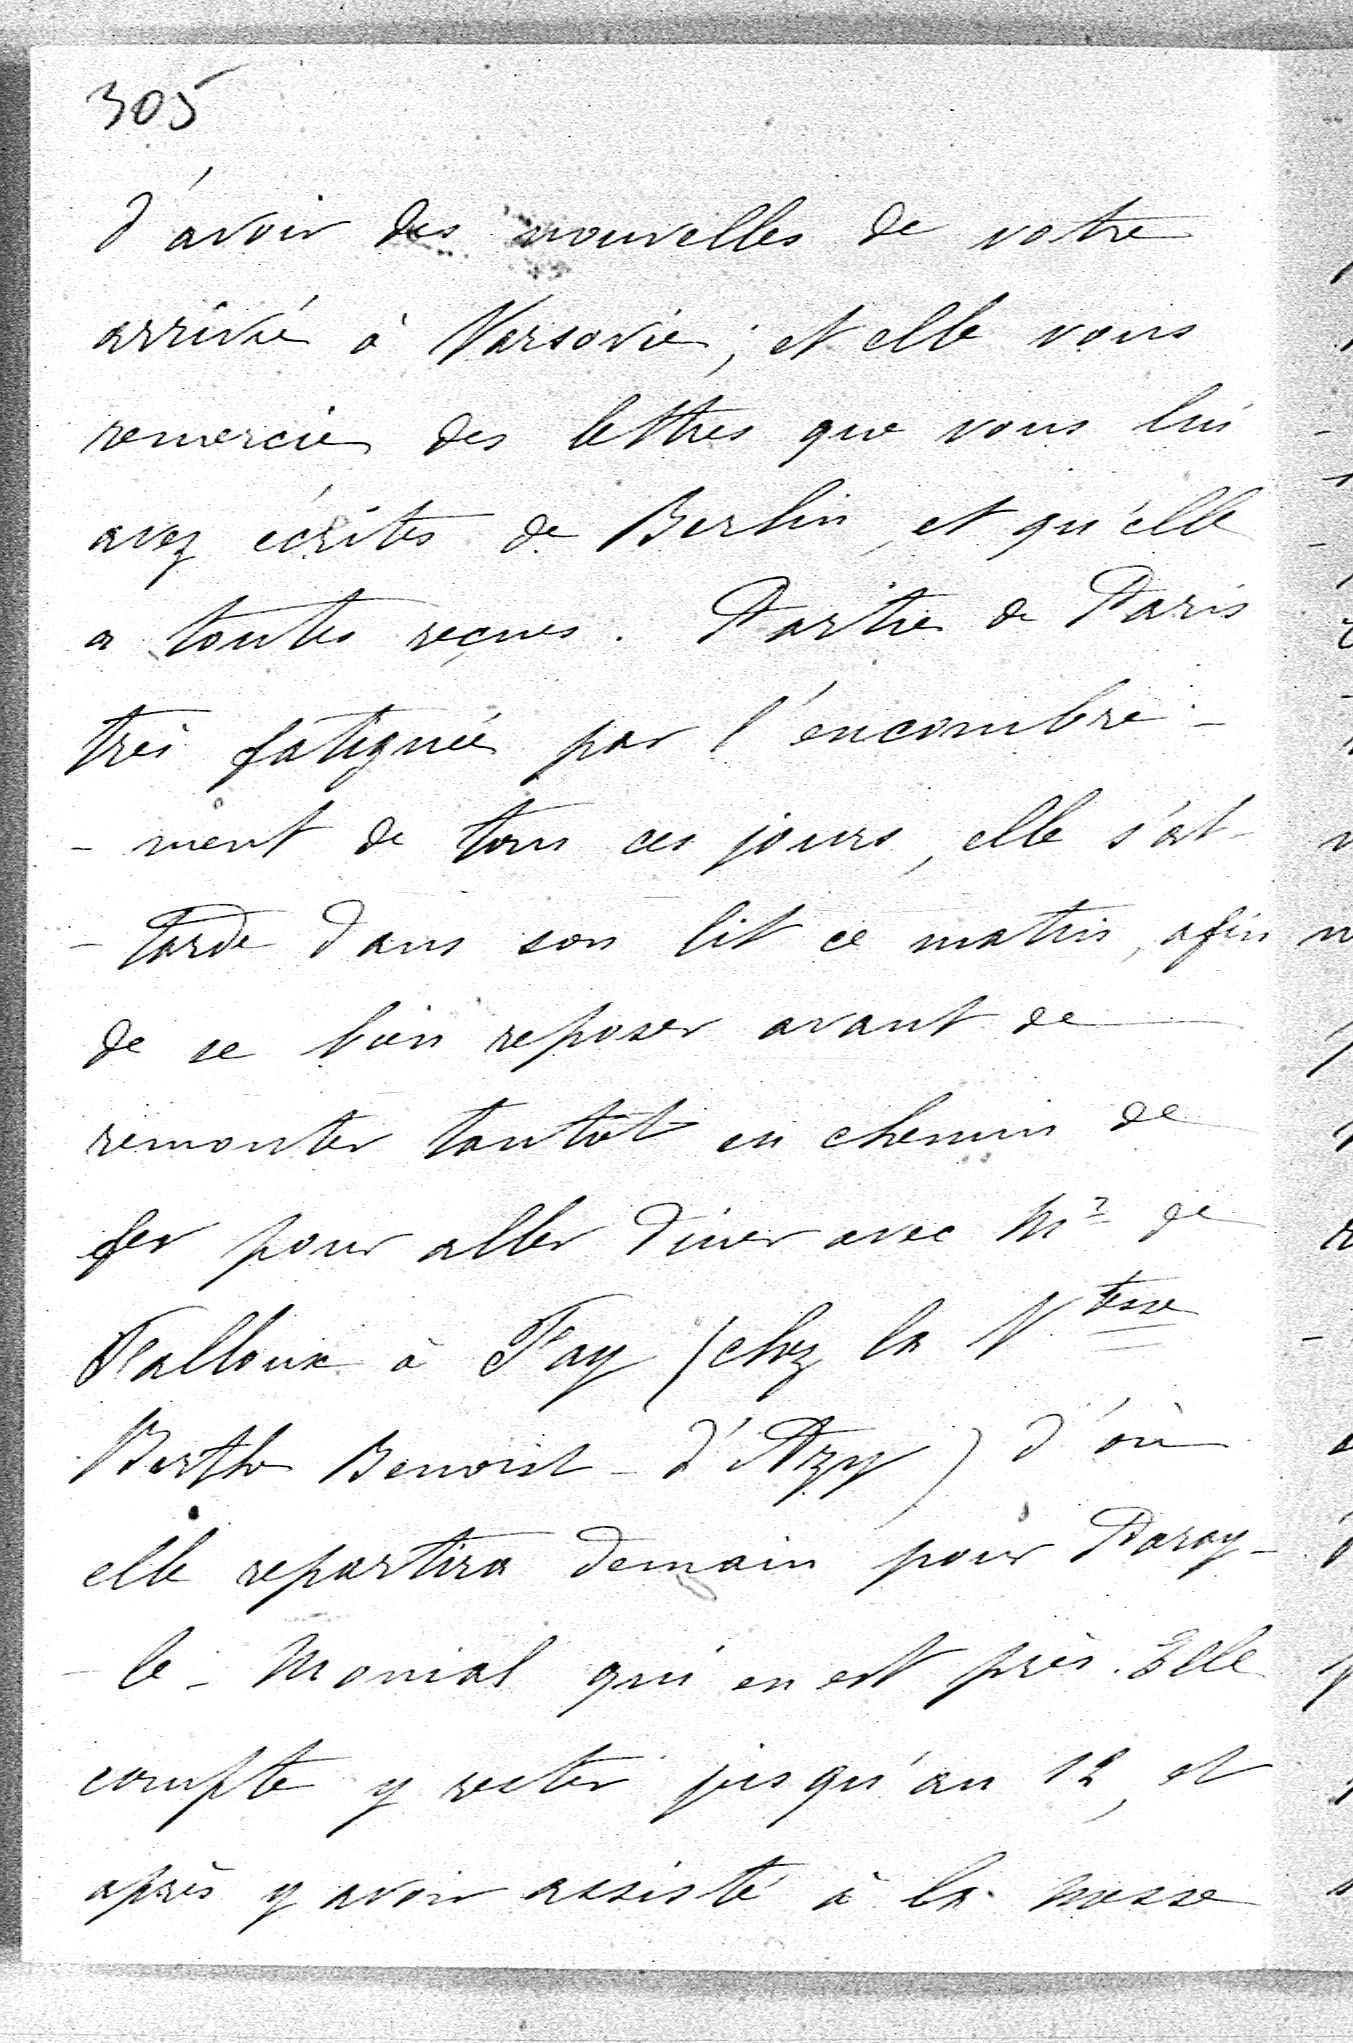 305
d'avoir des nouvelles de votre
arrivée à Varsovie ; et elle vous
remercie des lettres que vous lui
avez écrites de Berlin, et qu'elle
a toutes reçues. Partie de Paris
très fatiguée par l'encombre-
- ment de tous ces jours, elle s'at-
- tarde dans son lit ce matin, afin
de se bien reposer avant de
remonter tantôt en chemin de
fer pour aller diner avec Mr de
Falloux à Fay (chez la Vtesse
Berthe Benoist - d'Azy) d'où
elle repartira demain pour Paray-
- le - Monial qui en est près. Elle
compte y rester jusqu'au 12, et
après y avoir assisté à la messe